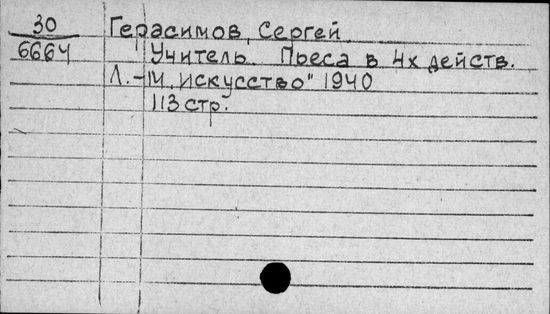 30 Герасимов, Сергей.
6664 Учитель. Пьеса в 4х действ.
Л.-М. „Искусство" 1940
113 стр.